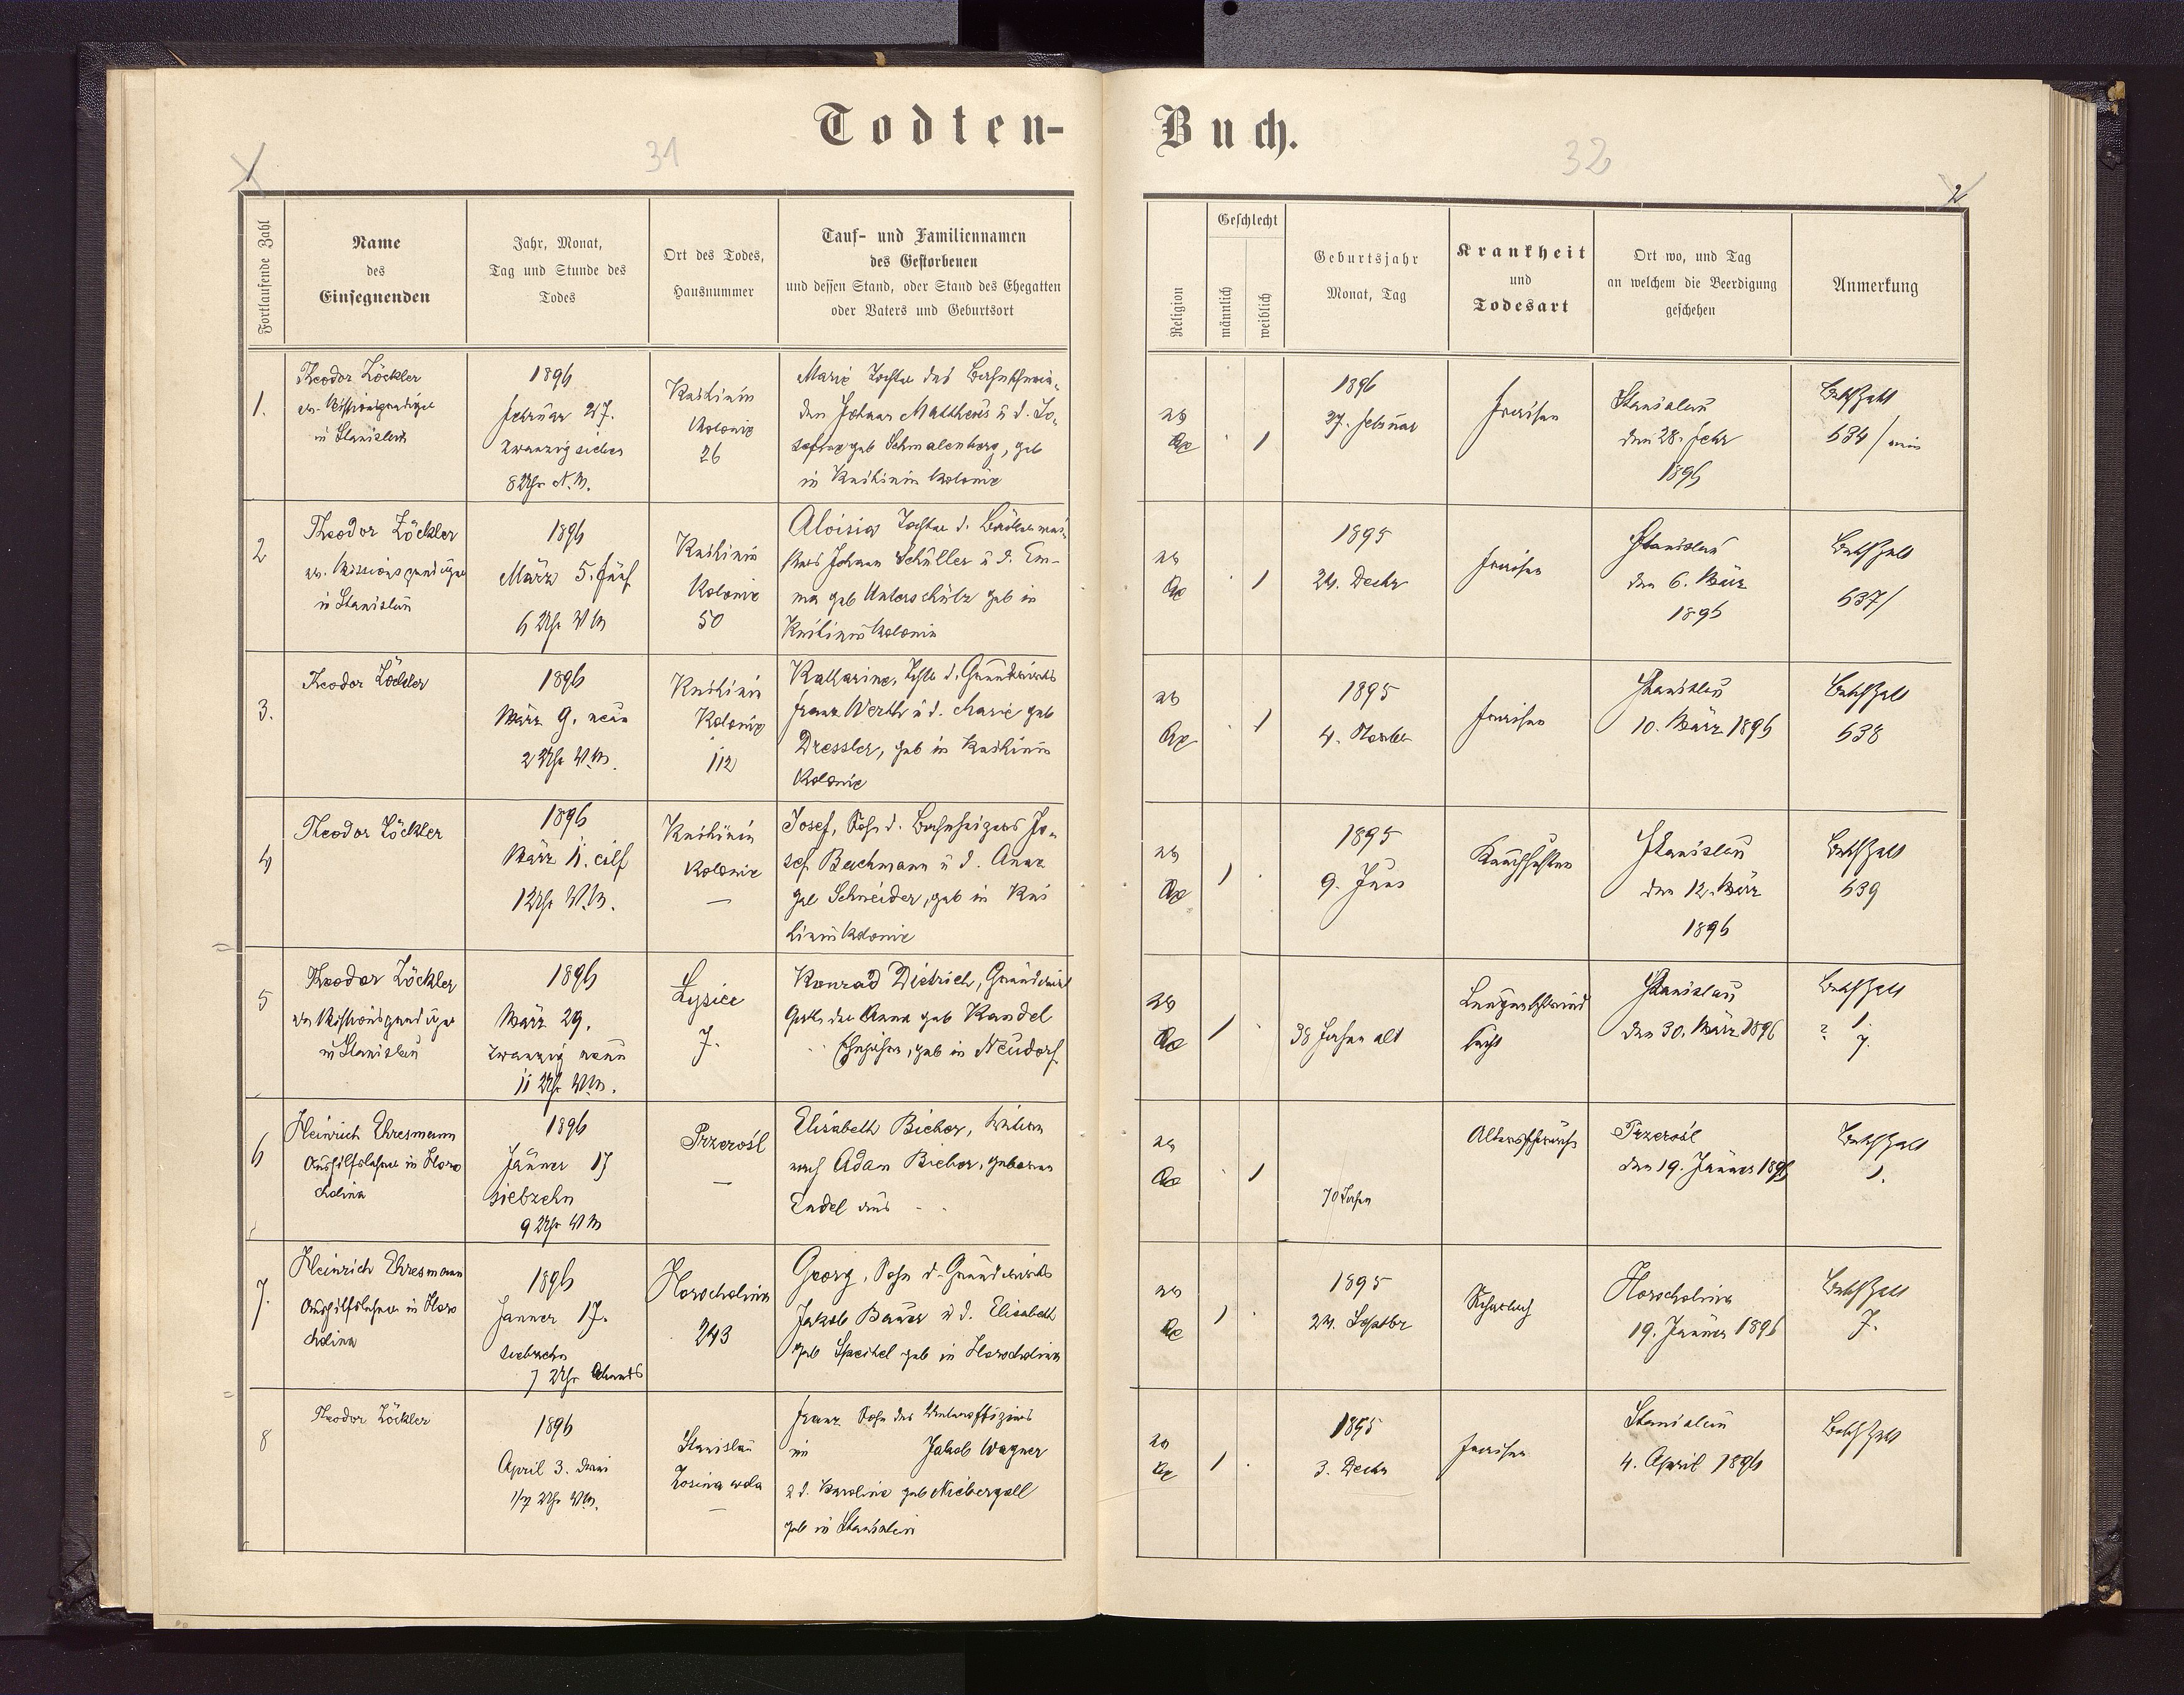 Todten-
Buch.
31
32
1
2
Fortlaufende Zahl
Name
des
Einsegnenden
Jahr, Monat,
Tag und Stunde des
Todes
Ort des Todes,
Hausnummer
Tauf- und Familiennamen
des Gestorbenen
und dessen Stand, oder Stand des Ehegatten
oder Vaters und Geburtsort
Religion
Geschlecht
männlich
weiblich
Geburtsjahr
Monat, Tag
Krankheit
und
Todesart
Ort wo, und Tag
an welchem die Beerdigung
geschehen
Anmerkung
1.
Theodor Zöckler
ev. Missionsprediger
in Stanislau
1896
Februar 27.
zwanzig sieben
8 Uhr N.M.
Knihinin
Kolonie
26
Marie Tochter des
Johann Mattheus u d. Jo-
geb Schmalenberg, geb
in Knihinin Kolonie
ev
1
1896
27. Februar
Fraisen
Stanislau
den 28. Febr
1896
BethZahl
634/
2
Theodor Zöckler
ev. Missionsprediger
in Stanislau
1896
März 5. fünf
6 Uhr VM
Knihinin
Kolonie
50
Aloisia Tochter d.
Johann Schüller u d. Em-
ma geb Unterschütz geb in
Knihinin Kolonie
ev
1
1895
24. Decbr
Fraisen
Stanislau
den 6. März
1896
BethZahl
637/
3.
Theodor Zöckler
1896
März 9. neun
2 Uhr VM.
Knihinin
Kolonie
112
Katharine, Tochter d. Grundwirths
Franz Werth u d. Marie geb
Dressler, geb in Knihinin
Kolonie
ev
1
1895
4. Novbr
Fraisen
Stanislau
10. März 1896
BethZahl
638
4
Theodor Zöckler
1896
März 11. eilf
12 Uhr VM.
Knihinin
Kolonie
—
Josef, Sohn d. Bahnheizers Jo-
sef Bachmann u d. Anna
geb Schneider, geb in Kni
hinin Kolonie
ev
1
1895
9. Juni
Keuchhusten
Stanislau
den 12. März
1896
BethZahl
639
5
Theodor Zöckler
ev Missionsprediger
in Stanislau
1896
März 29.
zwanzig neun
11 Uhr VM.
Lysiec
7.
Konrad Dietrich, Grundwirth
Gatte der Anna geb Kandel
geb in Neudorf
ev
1
38 Jahre alt
Lungenschwind
sucht
Stanislau
den 30. März 1896
BethZahl
? 1.
7.
6
Heinrich Ehresmann
Aushilfslehrer in Horo
cholina
1896
Jänner 17
siebzehn
9 Uhr VM
Przerośl
—
Elisabeth Bicher, Witwe
nach Adam Bicher, geborene
Zadel aus
ev
1
70 Jahre
Altersschwäche
Przerośl
den 19. Jänner 1896
BethZahl
1.
7.
Heinrich Ehresmann
Aushilfslehrer in Horo
cholina
1896
Janner 17.
siebzehn
7 Uhr Abends
Horocholina
243
Georg, Sohn d. Grundwirths
Jakob Bauer u d. Elisabeth
geb Speichel geb in Horocholina
ev
1
1895
24. Septbr
Scharlach
Horocholina
19. Jänner 1896
BethZahl
7.
8
Theodor Zöckler
1896
April 3. drei
1/2 7 Uhr VM.
Stanislau
Zosina wola
—
Franz Sohn des Unteroffiziers
im Jakob Wagner
u d. Karoline geb Niebergall
geb in Stanislau
ev
1
1895
3. Decbr
Fraisen
Stanislau
4. April 1896
BethZahl